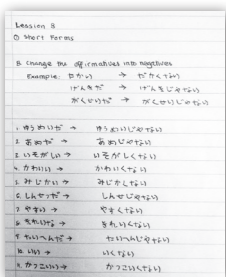 Lession 8
① Short Forms
B. Change the affirmatives into negatives
Example: たかい → たかくない
げんきだ → げんきじゃない
がくせいだ → がくせいじゃない
1. ゆうめいだ → ゆうめいじゃない
2. あめだ → あめじゃない
3. いそがしい → いそがしくない
4. かわいい → かわいくない
5. みじかい → みじかくない
6. しんせつだ →
7. やすい → やすくない
8. きれいだ → きれいくない
9. たいへんだ → たいへんじゃない
10. いい → いくない
11. かっこいい → かっこいくない